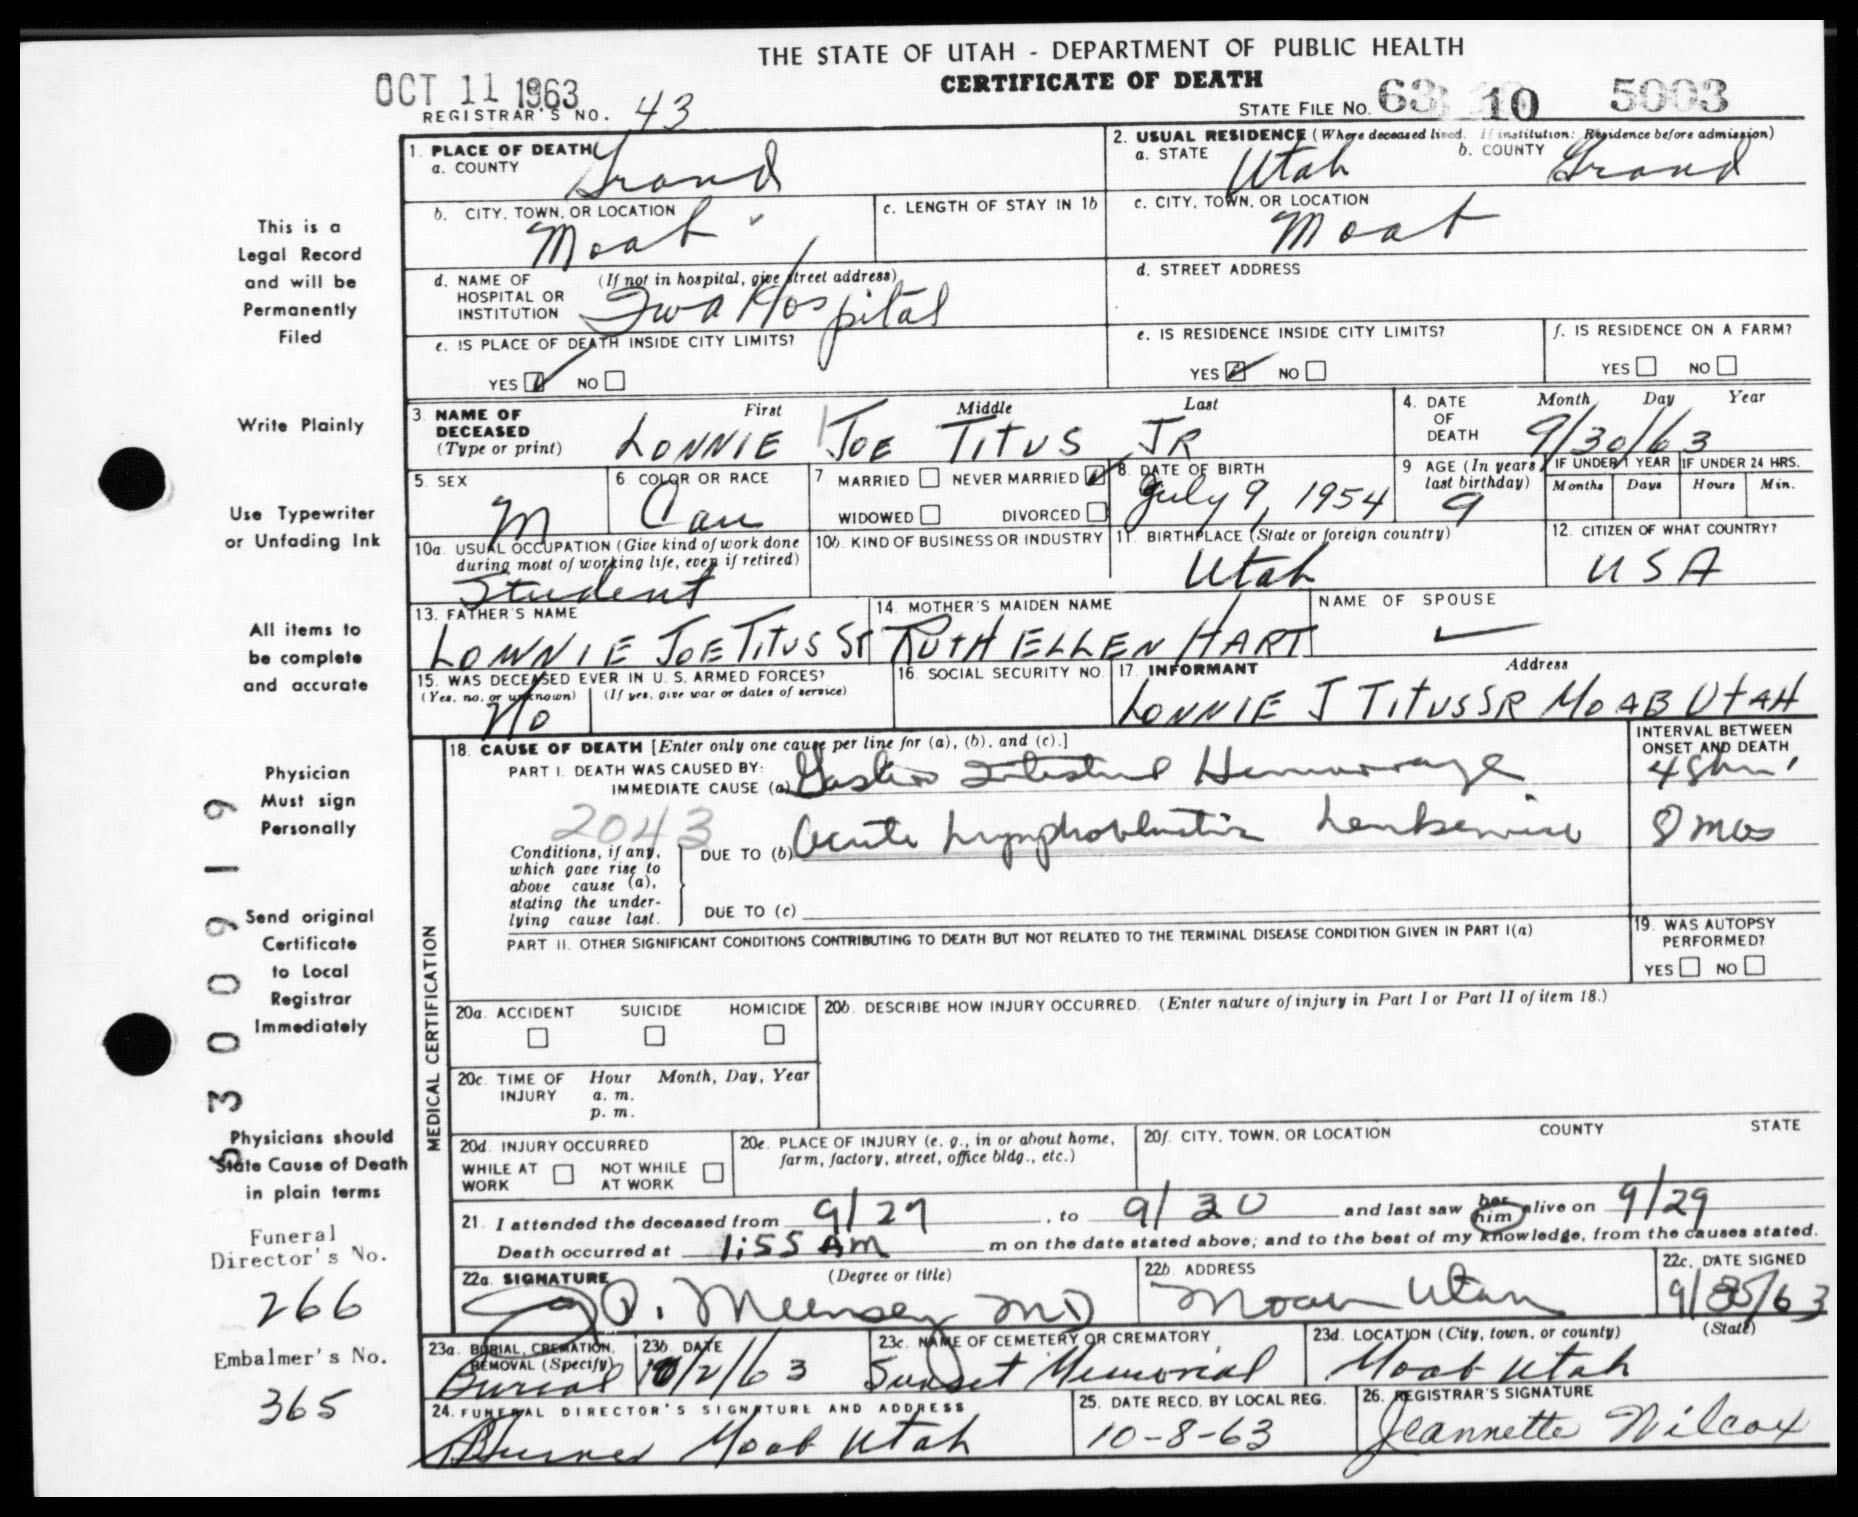 THE STATE OF UTAH - DEPARTMENT OF PUBLIC HEALTH
CERTIFICATE OF DEATH
OCT 11 1963
REGISTRAR'S NO. 43
STATE FILE NO. 63 10 5003
1. PLACE OF DEATH
a. COUNTY Grand
2. USUAL RESIDENCE (Where deceased lived. If institution: Residence before admission)
a. STATE Utah b. COUNTY Grand
b. CITY, TOWN, OR LOCATION Moab
c. LENGTH OF STAY IN 1b
c. CITY, TOWN, OR LOCATION Moab
d. NAME OF HOSPITAL OR INSTITUTION (If not in hospital, give street address) Hospital
d. STREET ADDRESS
e. IS PLACE OF DEATH INSIDE CITY LIMITS?
YES NO
e. IS RESIDENCE INSIDE CITY LIMITS?
YES NO
f. IS RESIDENCE ON A FARM?
YES NO
3. NAME OF DECEASED (Type or print)
First Middle Last
LONNIE JOE TITUS JR
4. DATE OF DEATH Month Day Year
9/30/63
5. SEX M
6 COLOR OR RACE Cau
7 MARRIED NEVER MARRIED
WIDOWED DIVORCED
8. DATE OF BIRTH July 9, 1954
9 AGE (In years last birthday) 9
IF UNDER 1 YEAR Months Days
IF UNDER 24 HRS. Hours Min.
10a. USUAL OCCUPATION (Give kind of work done during most of working life, even if retired) Student
10b. KIND OF BUSINESS OR INDUSTRY
11. BIRTHPLACE (State or foreign country) Utah
12. CITIZEN OF WHAT COUNTRY? USA
13. FATHER'S NAME LONNIE JOE TITUS Sr
14. MOTHER'S MAIDEN NAME RUTH ELLEN HART
NAME OF SPOUSE
15. WAS DECEASED EVER IN U.S. ARMED FORCES?
(Yes, no, or unknown) (If yes, give war or dates of service)
No
16. SOCIAL SECURITY NO.
17. INFORMANT Address
LONNIE J TITUS SR MOAB UTAH
18. CAUSE OF DEATH [Enter only one cause per line for (a), (b), and (c).]
INTERVAL BETWEEN ONSET AND DEATH
PART I. DEATH WAS CAUSED BY:
IMMEDIATE CAUSE (a) Gastro Intestinal Hemorrage 48 hrs.
2043
Conditions, if any, which gave rise to above cause (a), stating the underlying cause last.
DUE TO (b) Acute Lymphoblastic Leukemia 8 mos
DUE TO (c)
PART II. OTHER SIGNIFICANT CONDITIONS CONTRIBUTING TO DEATH BUT NOT RELATED TO THE TERMINAL DISEASE CONDITION GIVEN IN PART I(a)
19. WAS AUTOPSY PERFORMED?
YES NO
MEDICAL CERTIFICATION
20a. ACCIDENT SUICIDE HOMICIDE
20b. DESCRIBE HOW INJURY OCCURRED. (Enter nature of injury in Part I or Part II of item 18.)
20c. TIME OF INJURY Hour Month, Day, Year
a. m.
p. m.
20d. INJURY OCCURRED
WHILE AT WORK NOT WHILE AT WORK
20e. PLACE OF INJURY (e. g., in or about home, farm, factory, street, office bldg., etc.)
20f. CITY, TOWN, OR LOCATION COUNTY STATE
21. I attended the deceased from 9/29, to 9/30 and last saw her him alive on 9/29
Death occurred at 1:55 AM m on the date stated above; and to the best of my knowledge, from the causes stated.
22a. SIGNATURE (Degree or title)
MD
22b. ADDRESS Moab Utah
22c. DATE SIGNED 9/ /63
23a. BURIAL, CREMATION, REMOVAL (Specify) Burial
23b. DATE 10/2/63
23c. NAME OF CEMETERY OR CREMATORY Sunset Memorial
23d. LOCATION (City, town, or county) (State)
Moab Utah
24. FUNERAL DIRECTOR'S SIGNATURE AND ADDRESS
Moab Utah
25. DATE RECD. BY LOCAL REG. 10-8-63
26. REGISTRAR'S SIGNATURE Jeannette Wilcox
This is a
Legal Record
and will be
Permanently
Filed
Write Plainly
Use Typewriter
or Unfading Ink
All items to
be complete
and accurate
Physician
Must sign
Personally
Send original
Certificate
to Local
Registrar
Immediately
Physicians should
State Cause of Death
in plain terms
Funeral
Director's No.
266
Embalmer's No.
365